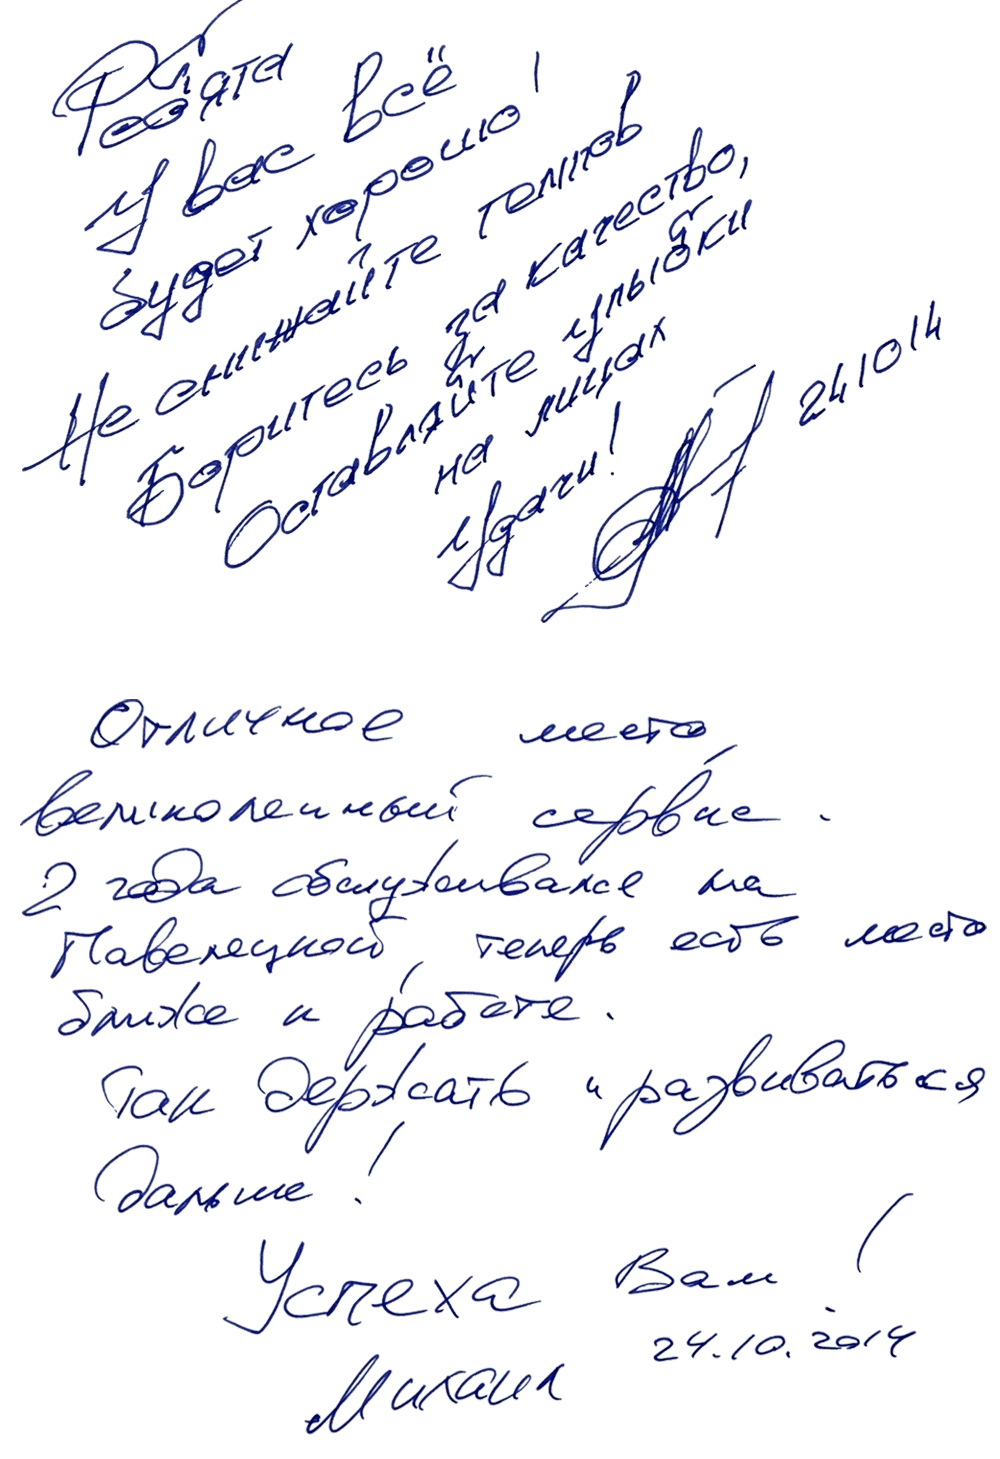 Ребята
У вас всё
будет хорошо!
Не снижайте темпов
Боритесь за качество,
Оставляйте улыбки
на лицах
Удачи!
241014
Отличное место,
великолепный сервис.
2 года обслуживался на
Павелецкой, теперь есть место
ближе к работе.
Так держать и развиваться
дальше!
Успеха Вам!
24.10.2014
Михаил